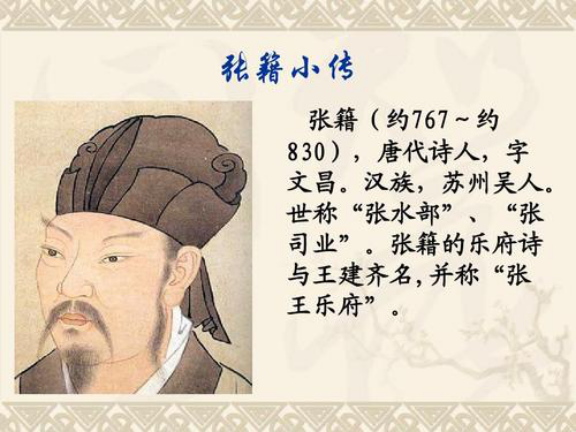 张籍小传
张籍（约767～约
830），唐代诗人，字
文昌。汉族，苏州吴人。
世称“张水部”、“张
司业”。张籍的乐府诗
与王建齐名,并称“张
王乐府”。